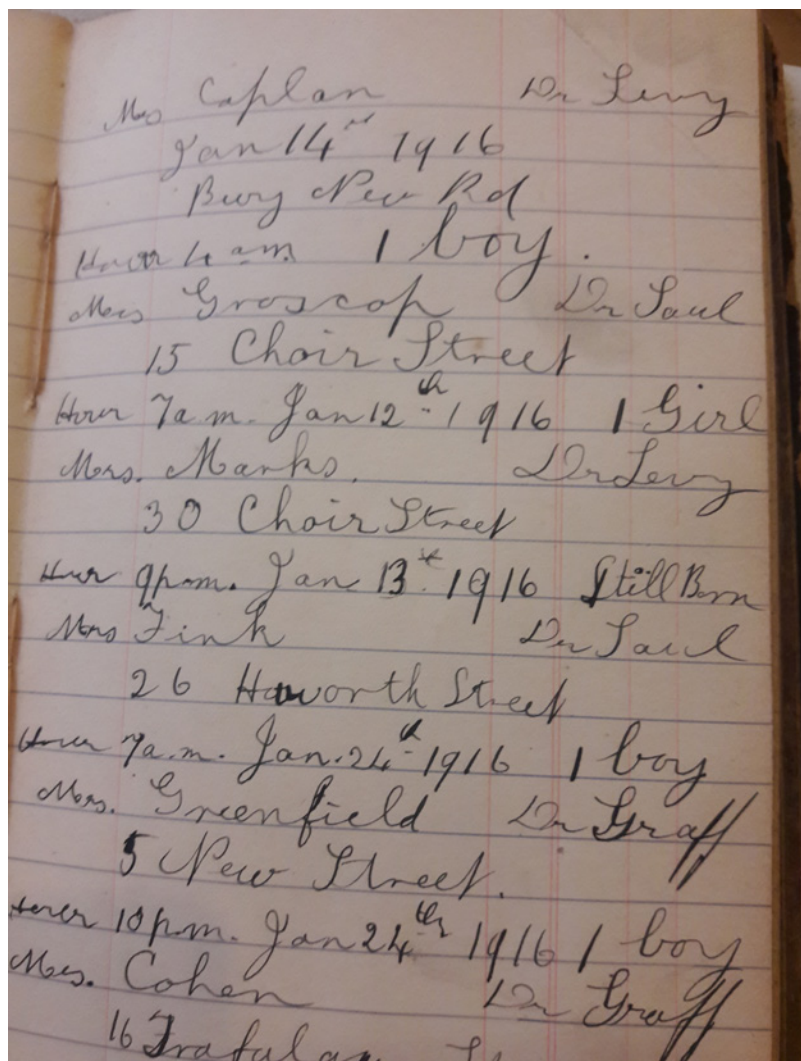 Mrs Caplan Dr Levy
Jan 14th 1916
Bury New Rd
Hour 4 am. 1 boy.
Mrs Groscop Dr Saul
15 Choir Street
Hour 7a.m. Jan 12th 1916 1 Girl
Mrs. Marks. Dr Levy
30 Choir Street
Hour 9p.m. Jan 13th 1916 Still Born
Mrs Fink Dr Saul
26 Haworth Street
Hour 7a.m. Jan. 24th 1916 1 boy
Mrs. Greenfield Dr Graff
5 New Street.
Hour 10p.m. Jan 24th 1916 1 boy
Mrs. Cohen Dr Graff
16 Trafalgar